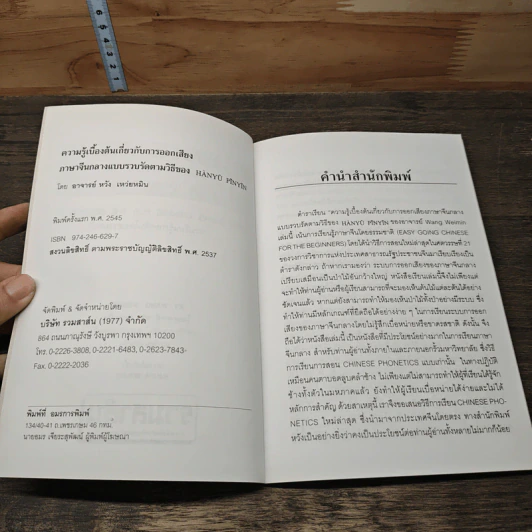 6 5 4 3 2 1
ความรู้เบื้องต้นเกี่ยวกับการออกเสียง
ภาษาจีนกลางแบบรวบรัดตามวิธีของ HÀNYǓ PĪNYĪN
โดย อาจารย์ หวัง เหว่ยหมิน
พิมพ์ครั้งแรก พ.ศ. 2545
ISBN 974-246-629-7
สงวนลิขสิทธิ์ ตามพระราชบัญญัติลิขสิทธิ์ พ.ศ. 2537
จัดพิมพ์ & จัดจำหน่ายโดย
บริษัท รวมสาส์น (1977) จำกัด
864 ถนนภาณุรังษี วังบูรพา กรุงเทพฯ 10200
โทร. 0-2226-3808, 0-2221-6483, 0-2623-7843-
Fax. 0-2222-2036
พิมพ์ที่ อมรการพิมพ์
134/40-41 ถ.เพชรเกษม 46 กทม.
นายอมร เจียระสุพัฒน์ ผู้พิมพ์ผู้โฆษณา
คำนำสำนักพิมพ์
ตำราเรียน “ความรู้เบื้องต้นเกี่ยวกับการออกเสียงภาษาจีนกลาง
แบบรวบรัดตามวิธีของ HÀNYǓ PĪNYĪN ของอาจารย์ Wang Weimin
เล่มนี้ เน้นการเรียนรู้ภาษาจีนโดยธรรมชาติ (EASY GOING CHINESE
FOR THE BEGINNERS) โดยได้นำวิธีการสอนใหม่ล่าสุดในศตวรรษที่ 21
ของวงการวิชาการแห่งประเทศสาธารณรัฐประชาชนจีนมาเรียบเรียงเป็น
ตำราดังกล่าว ถ้าหากเรามองว่า ระบบการออกเสียงของภาษาจีนกลาง
เปรียบเสมือนเป็นป่าไม้อันกว้างใหญ่ หนังสือเรียนเล่มนี้จึงไม่เพียงแต่
จะทำให้ท่านผู้อ่านหรือผู้เรียนสามารถที่จะมองเห็นต้นไม้แต่ละต้นได้อย่าง
ชัดเจนแล้ว หากแต่ยังสามารถทำให้มองเห็นป่าไม้ทั้งป่าอย่างมีระบบ ซึ่ง
ทำให้ท่านมีหลักเกณฑ์ที่ยึดถือได้อย่างง่าย ๆ ในการเรียนระบบการออก
เสียงของภาษาจีนกลางโดยไม่รู้สึกเบื่อหน่ายหรือขาดรสชาติ ดังนั้น จึง
ถือได้ว่าหนังสือเล่มนี้ เป็นหนังสือที่มีประโยชน์อย่างมากในการเรียนภาษา
จีนกลาง สำหรับท่านผู้อ่านทั้งภายในและภายนอกรั้วมหาวิทยาลัย ซึ่งวิธี
การเรียนการสอน CHINESE PHONETICS แบบเก่านั้น ในทางปฏิบัติ
เหมือนคนตาบอดลูบคลำช้าง ไม่เพียงแต่ไม่สามารถทำให้ผู้ที่เรียนได้รู้จัก
ช้างทั้งตัวในมหภาคแล้ว ยังทำให้ผู้เรียนเบื่อหน่ายได้ง่ายและไม่ได้
หลักการสำคัญ ด้วยสาเหตุนี้ เราจึงขอเสนอวิธีการเรียน CHINESE PHO-
NETICS ใหม่ล่าสุด ซึ่งนำมาจากประเทศจีนโดยตรง ทางสำนักพิมพ์
หวังเป็นอย่างยิ่งว่าคงเป็นประโยชน์ต่อท่านผู้อ่านทั้งหลายไม่มากก็น้อย